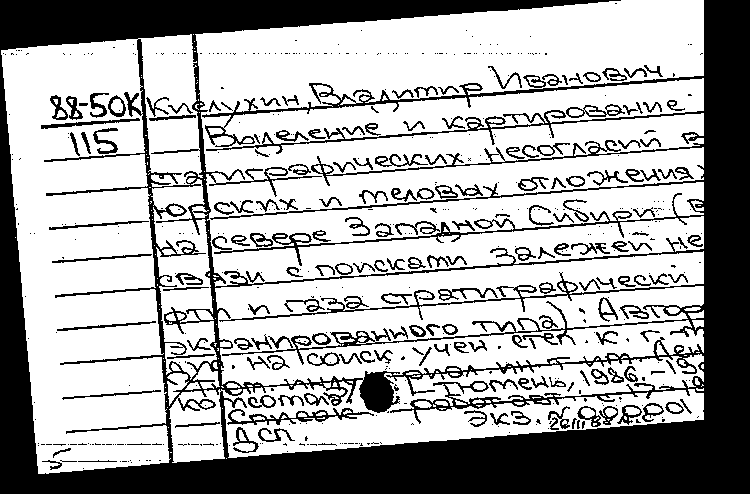 88-50К Киелухин, Владимир Иванович.
115 Выделение и картирование
стратиграфических несогласий в
юрских и меловых отложениях
на севере Западной Сибири (в
связи с поисками залежей не
фти и газа стратиграфически
экранированного типа): Автор
на соиск. учен. степ. к. г.-
Тюм. индустриал. ин-т им. Лен
комсомола, Тюмень, 1986. - 19
Список работ: с. 17-19
Экз. N 000001
ДСП.
5